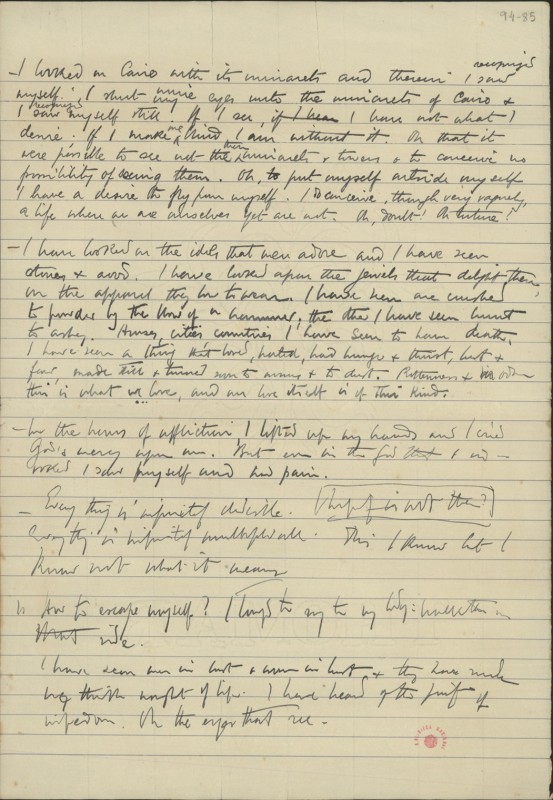 94-85
recognised
— I looked on Cairo with its minarets and therein I saw
myself. I shut mine eyes unto the minarets of Cairo &
recognised
I saw myself still. If I see, if I hear I have not what I
desire. If I make me blind, I am without it. Oh that it
were possible to see not the minarets & towers & to conceive no
possibility of seeing them. Oh, to put myself outside myself
I have a desire to fly from myself. I conceive, though very vaguely,
a life where we are ourselves yet are not. Oh, doubt! Oh torture!
— I have looked on the idols that men adore and I have seen
stones & wood. I have looked upon the jewels that delight them,
on the apparel they love to wear. I have seen one crushed
to powder by the blow of a hammer, the other I have seen burnt
to ashes. Houses, cities, countries I have seen to have death.
I have seen a thing that loved, hated, had hunger & thirst, lust &
fear made still & turned soon to worms & to dust. Rottenness &
this is what we love, and our love itself is of this kind.
— In the hours of affliction I lifted up my hands and I cried
God's mercy upon me. But even in the God that I in-
voked I saw myself and had pain.
— Everything is infinitely divisible.
Everything is infinitely multiplicable. This I know but I
know not what it means
How to escape myself? I to say to my body: walk thou on
that side.
I have seen men in lust & women in lust, & they have made
me think naught of life. I have heard of the
of wisdom. Oh the eyes that see —